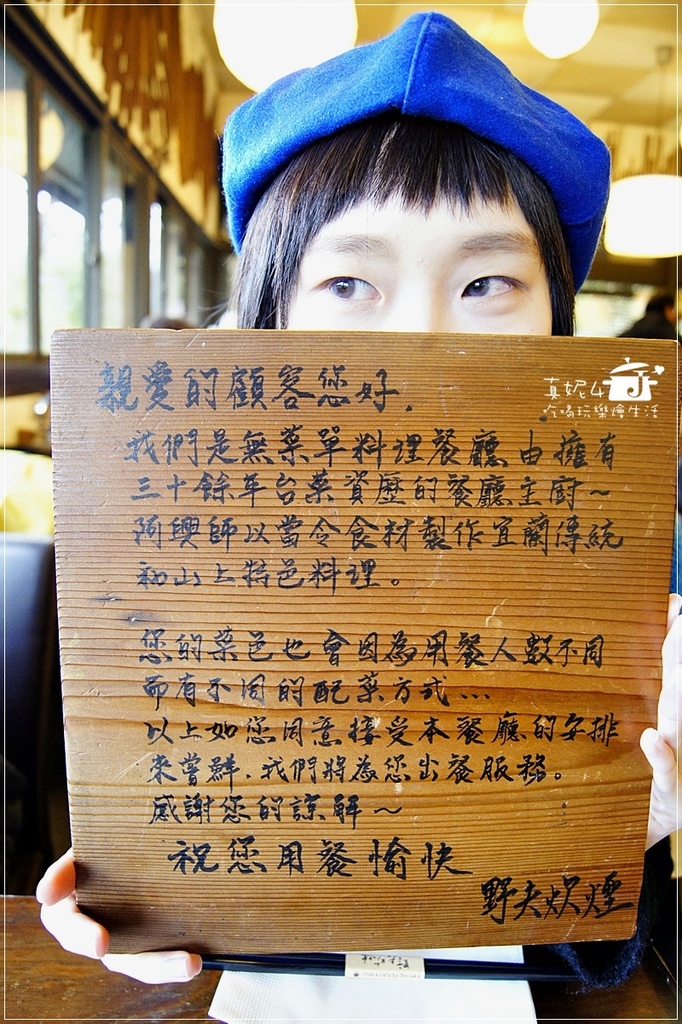 親愛的顧客您好.
我們是無菜單料理餐廳由擁有
三十餘年台菜資歷的餐廳主廚~
阿興師以當令食材製作宜蘭傳統
和山上特色料理。
您的菜色也會因為用餐人數不同
而有不同的配菜方式...
以上如您同意接受本餐廳的安排
來嘗鮮.我們將為您出餐服務。
感謝您的諒解~
祝您用餐愉快
野夫炊煙
真妮4
吃喝玩樂燴生活